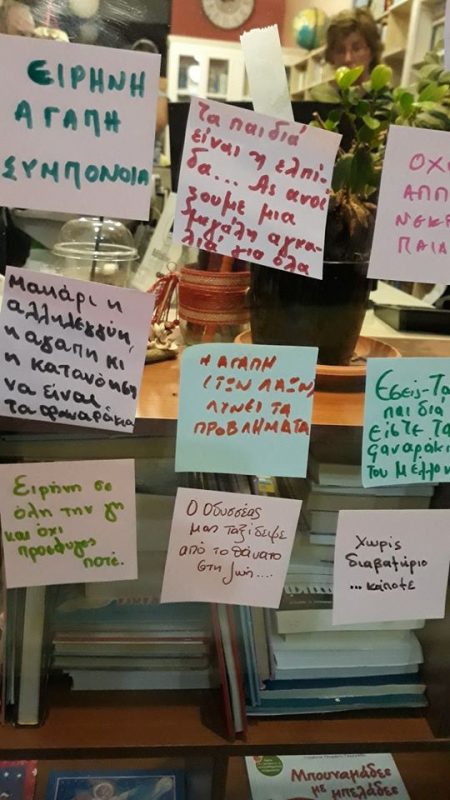 ΕΙΡΗΝΗ
ΑΓΑΠΗ
ΣΥΜΠΟΝΟΙΑ
Τα παιδιά
είναι η ελπί-
δα... Ας ανοί
ξουμε μια
μεγάλη αγκα-
λιά για όλα
ΟΧΙ
ΑΠΠ
ΝΕΚΡ
ΠΑΙΔ
Μακάρι η
αλληλεγγύη,
η αγάπη κι
η κατανόηση
να είναι
τα φαναράκια
Η ΑΓΑΠΗ
(ΤΩΝ ΛΑΩΝ)
ΛΥΝΕΙ ΤΑ
ΠΡΟΒΛΗΜΑΤΑ
Εσείς-Τα
παιδιά
είστε τα
φαναράκι
του μέλλον
Ειρήνη σε
όλη την γη
και όχι
πρόσφυγες
ποτέ.
Ο Οδυσσέας
μας ταξίδεψε
από το θάνατο
στη ζωή....
Χωρίς
διαβατήριο
... κάποτε
Μπουναμάδες
με
μπελάδες